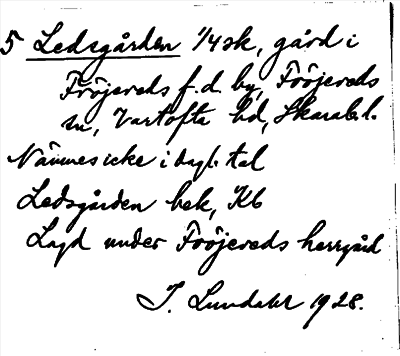 5 Ledsgården 1/4 sk, gård i
Fröjereds f.d. by, Fröjereds
sn, Vartofta hd, Skarab. l.
Nämnes icke i dagl. tal
Ledsgården bek, Kb
Lagd under Fröjereds herrgård
J. Lundahl 1928.